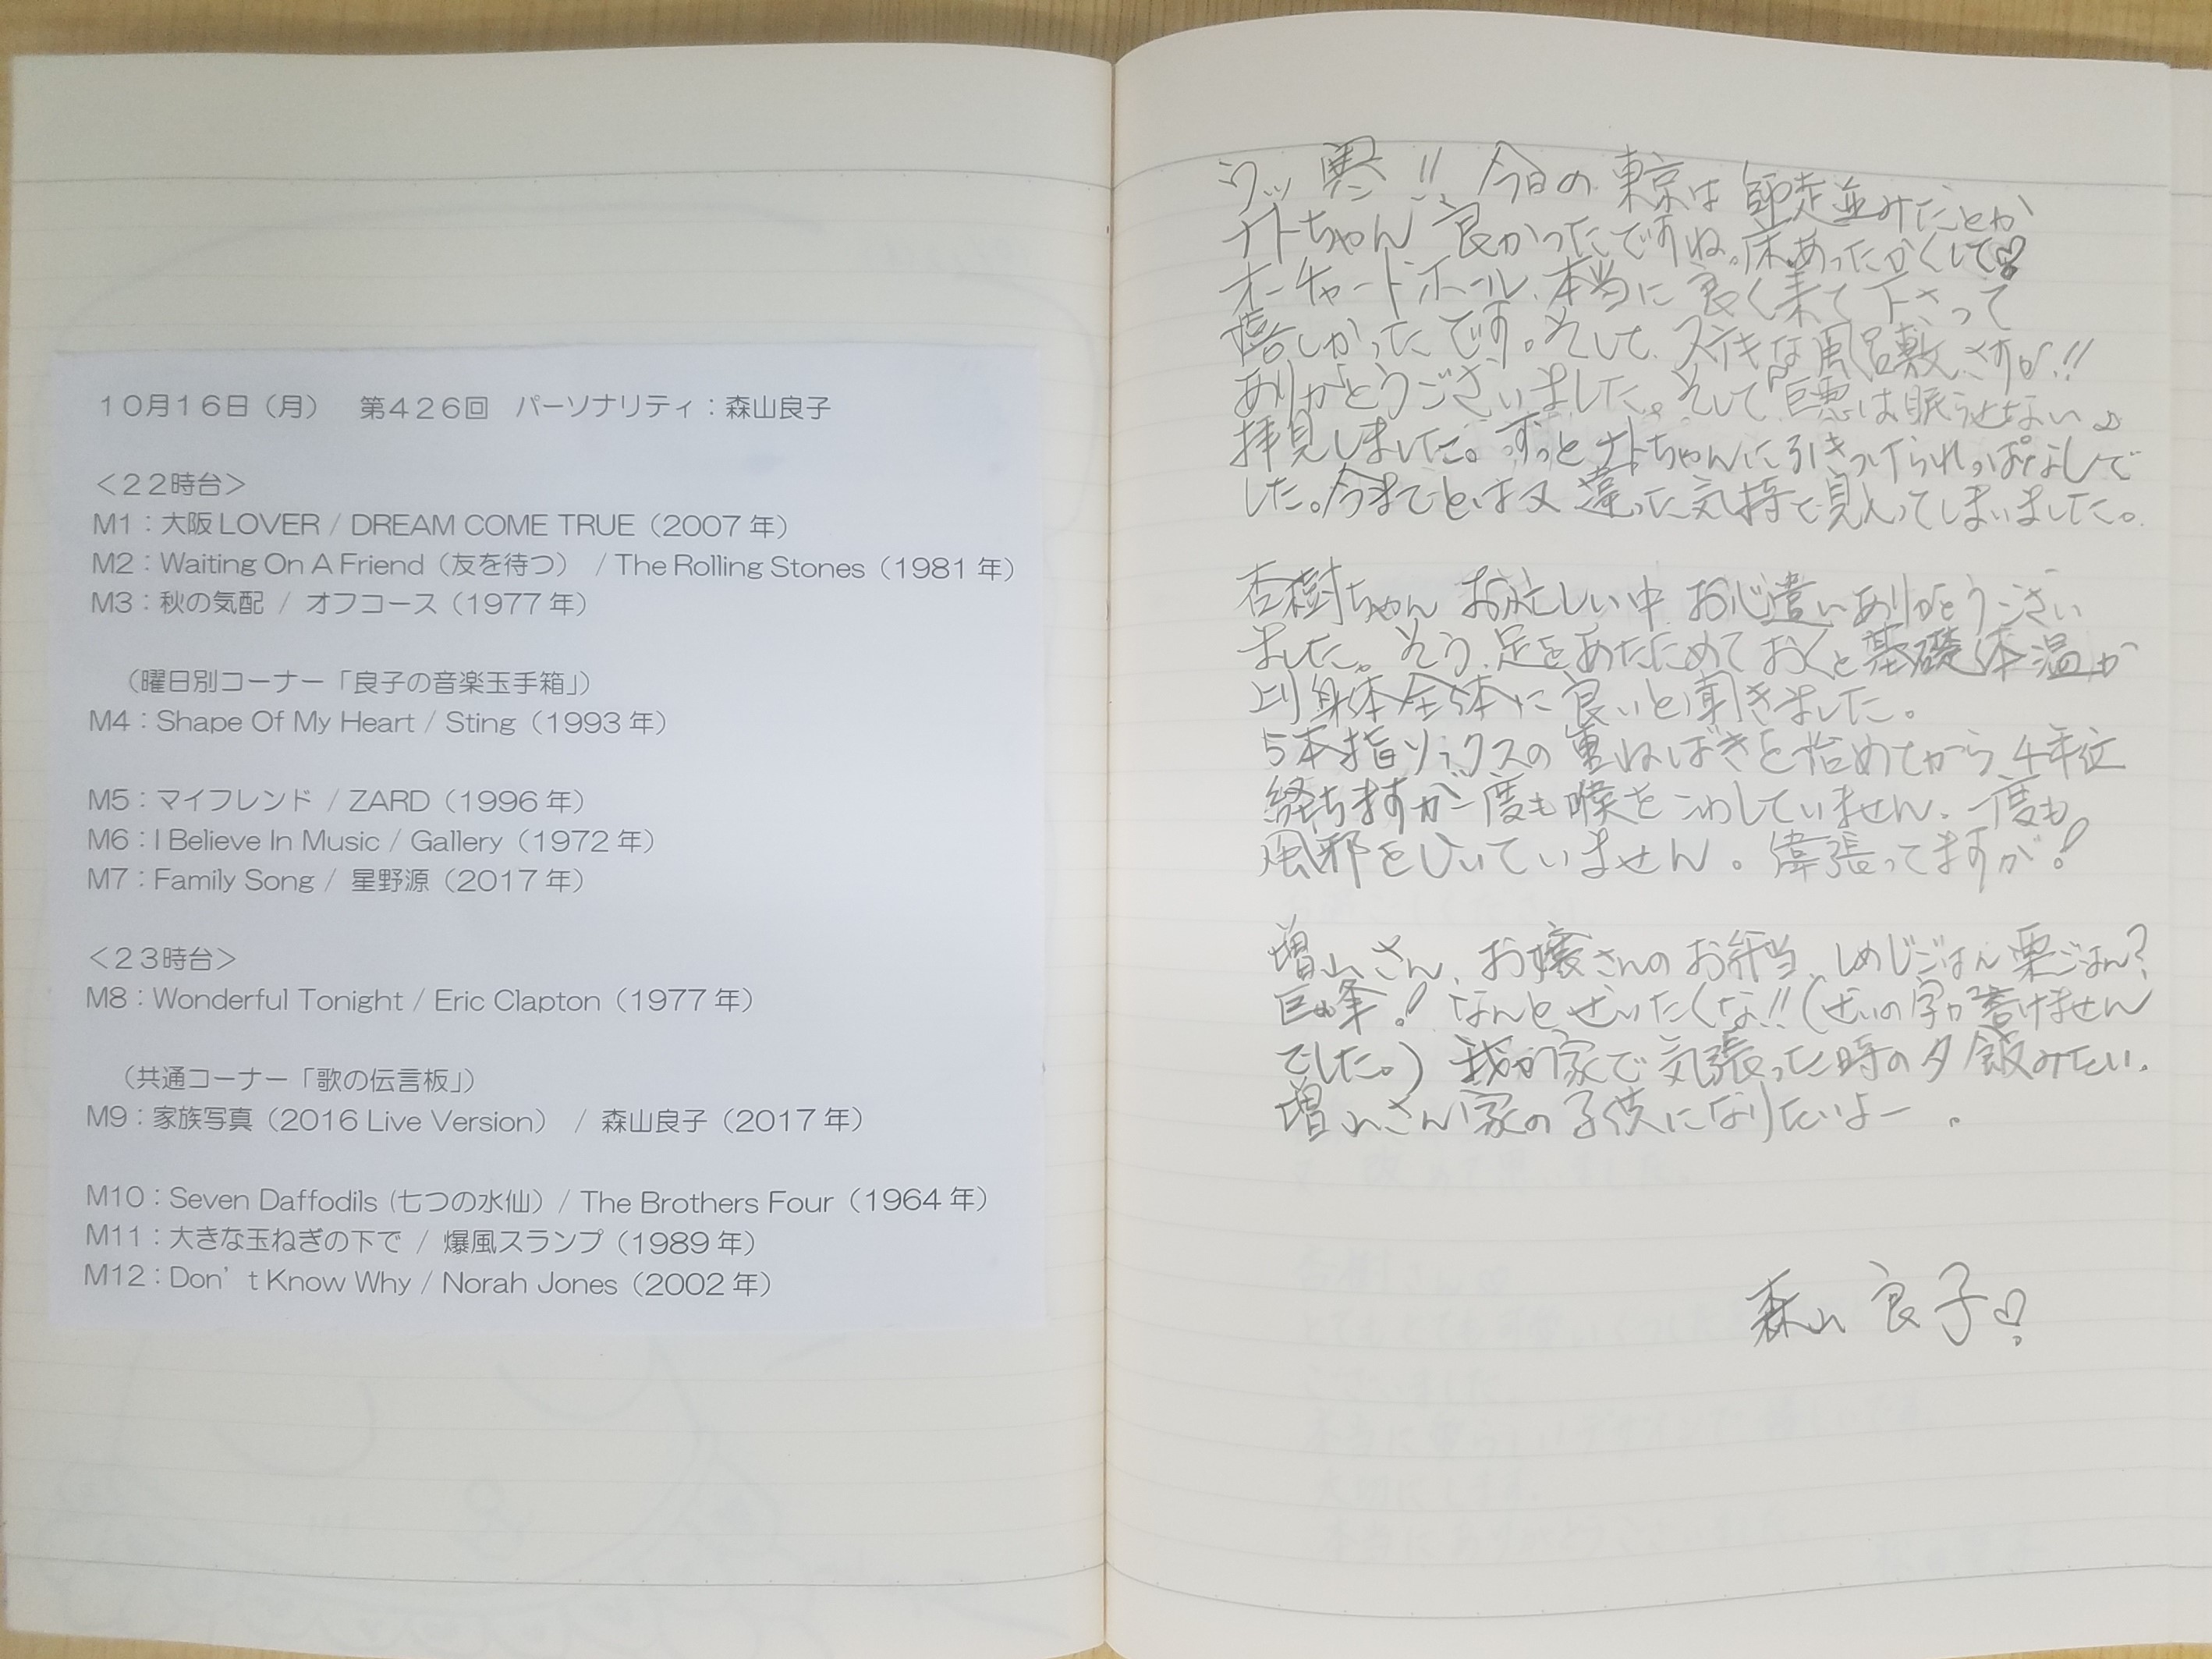 10月16日（月）　第426回　パーソナリティ：森山良子
＜22時台＞
M1：大阪LOVER / DREAM COME TRUE（2007年）
M2：Waiting On A Friend（友を待つ） / The Rolling Stones（1981年）
M3：秋の気配 / オフコース（1977年）
（曜日別コーナー「良子の音楽玉手箱」）
M4：Shape Of My Heart / Sting（1993年）
M5：マイフレンド / ZARD（1996年）
M6：I Believe In Music / Gallery（1972年）
M7：Family Song / 星野源（2017年）
＜23時台＞
M8：Wonderful Tonight / Eric Clapton（1977年）
（共通コーナー「歌の伝言板」）
M9：家族写真（2016 Live Version） / 森山良子（2017年）
M10：Seven Daffodils (七つの水仙）/ The Brothers Four（1964年）
M11：大きな玉ねぎの下で / 爆風スランプ（1989年）
M12：Don't Know Why / Norah Jones（2002年）
ウッ 寒!! 今日の東京は師走並みだとか
ナトちゃん 良かったですね。床あったかくして♡
オーチャードホール、本当に良く来て下さって
嬉しかったです。そして、ステキな風呂敷、さすが!!
ありがとうございました。そして"巨悪は眠らせない"
拝見しました。ずっとナトちゃんに引きつけられっぱなしで
した。今までとは又違った気持で見入ってしまいました。
杏樹ちゃん お忙しい中 お心遣いありがとうござい
ました。そう、足をあたためておくと基礎体温が
上り身体全体に良いと聞きました。
5本指ソックスの重ねばきを始めてから4年位
経ちますが一度も喉をこわしていません、一度も
風邪をひいていません。偉張ってますが!
増山さん、お嬢さんのお弁当、しめじごはん 栗ごはん?
巨峰! なんとぜいたくな!!(ぜいの字が書けません
でした。) 我が家で気張った時の夕飯みたい.
増山さん家の子供になりたいよー。
森山良子♡